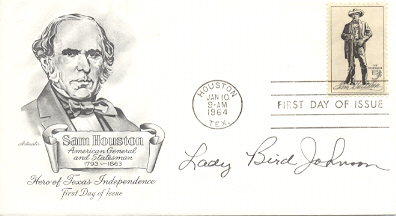 Artcraft
Sam Houston
American General
and Statesman
1793-1863
Hero of Texas Independence
First Day of Issue
HOUSTON
JAN 10
9-AM
1964
TEX.
FIRST DAY OF ISSUE
Sam Houston
Lady Bird Johnson